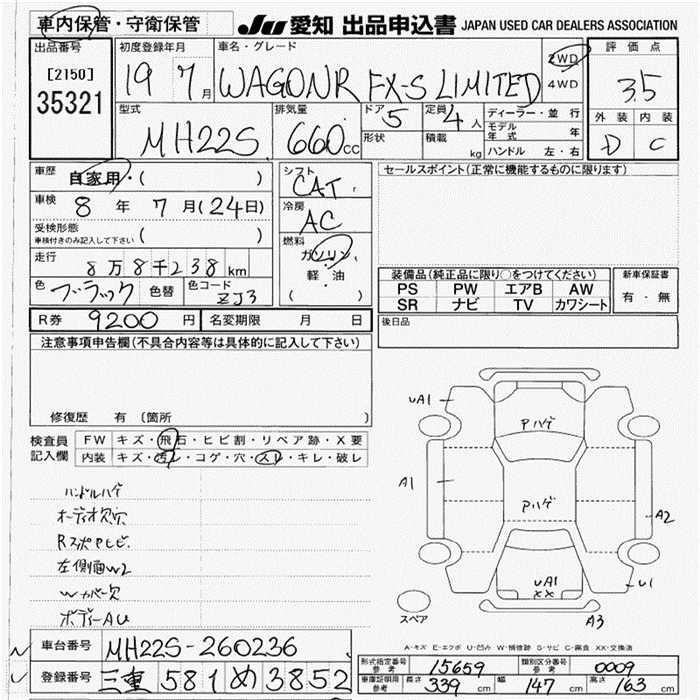 車内保管・守衛保管 JU 愛知 出品申込書 JAPAN USED CAR DEALERS ASSOCIATION
出品番号 初度登録年月 車名・グレード 評価点
[2150] 19 7月 WAGONR FX-S LIMITED 2WD 3.5
35321 4WD
外装 内装
型式 排気量 ドア 5 定員 4人 ディーラー・並行
MH22S 660cc 形状 積載 kg モデル年式 年 D C
ハンドル 左・右
車歴 自家用・( ) シフト CAT セールスポイント(正常に機能するものに限ります)
車検 8年 7月(24日) 冷房 AC
受検形態 ( )
車検付きのみ記入して下さい
燃料 ガソリン
軽・油
( )
走行 8万8千238km
装備品(純正品に限り○をつけてください) 新車保証書
色 ブラック 色替 色コード ZJ3
PS PW エアB AW 有・無
SR ナビ TV カワシート
R券 9200円 名変期限 月 日 後日品
注意事項申告欄(不具合内容等は具体的に記入して下さい)
修復歴 有(箇所 )
検査員記入欄 FW キズ・飛石・ヒビ割・リペア跡・X要
内装 キズ・汚レ・コゲ・穴・スレ・キレ・破レ
ハンドルハゲ
オーディオ欠穴
左側面W2
Wカバー欠
ボディーAU
UA1
Pハゲ
A1
Pハゲ
A2
UA1
XX
U1
A3
スペア
A-キズ E-エクボ U-凹み W-補修跡 S-サビ C-腐食 XX-交換済
車台番号 MH22S-260236
登録番号 三重 581 め 3852
形式指定番号 参考 15659 類別区分番号 参考 0009
車庫証明用 参考 長さ 339cm 幅 147cm 高さ 163cm